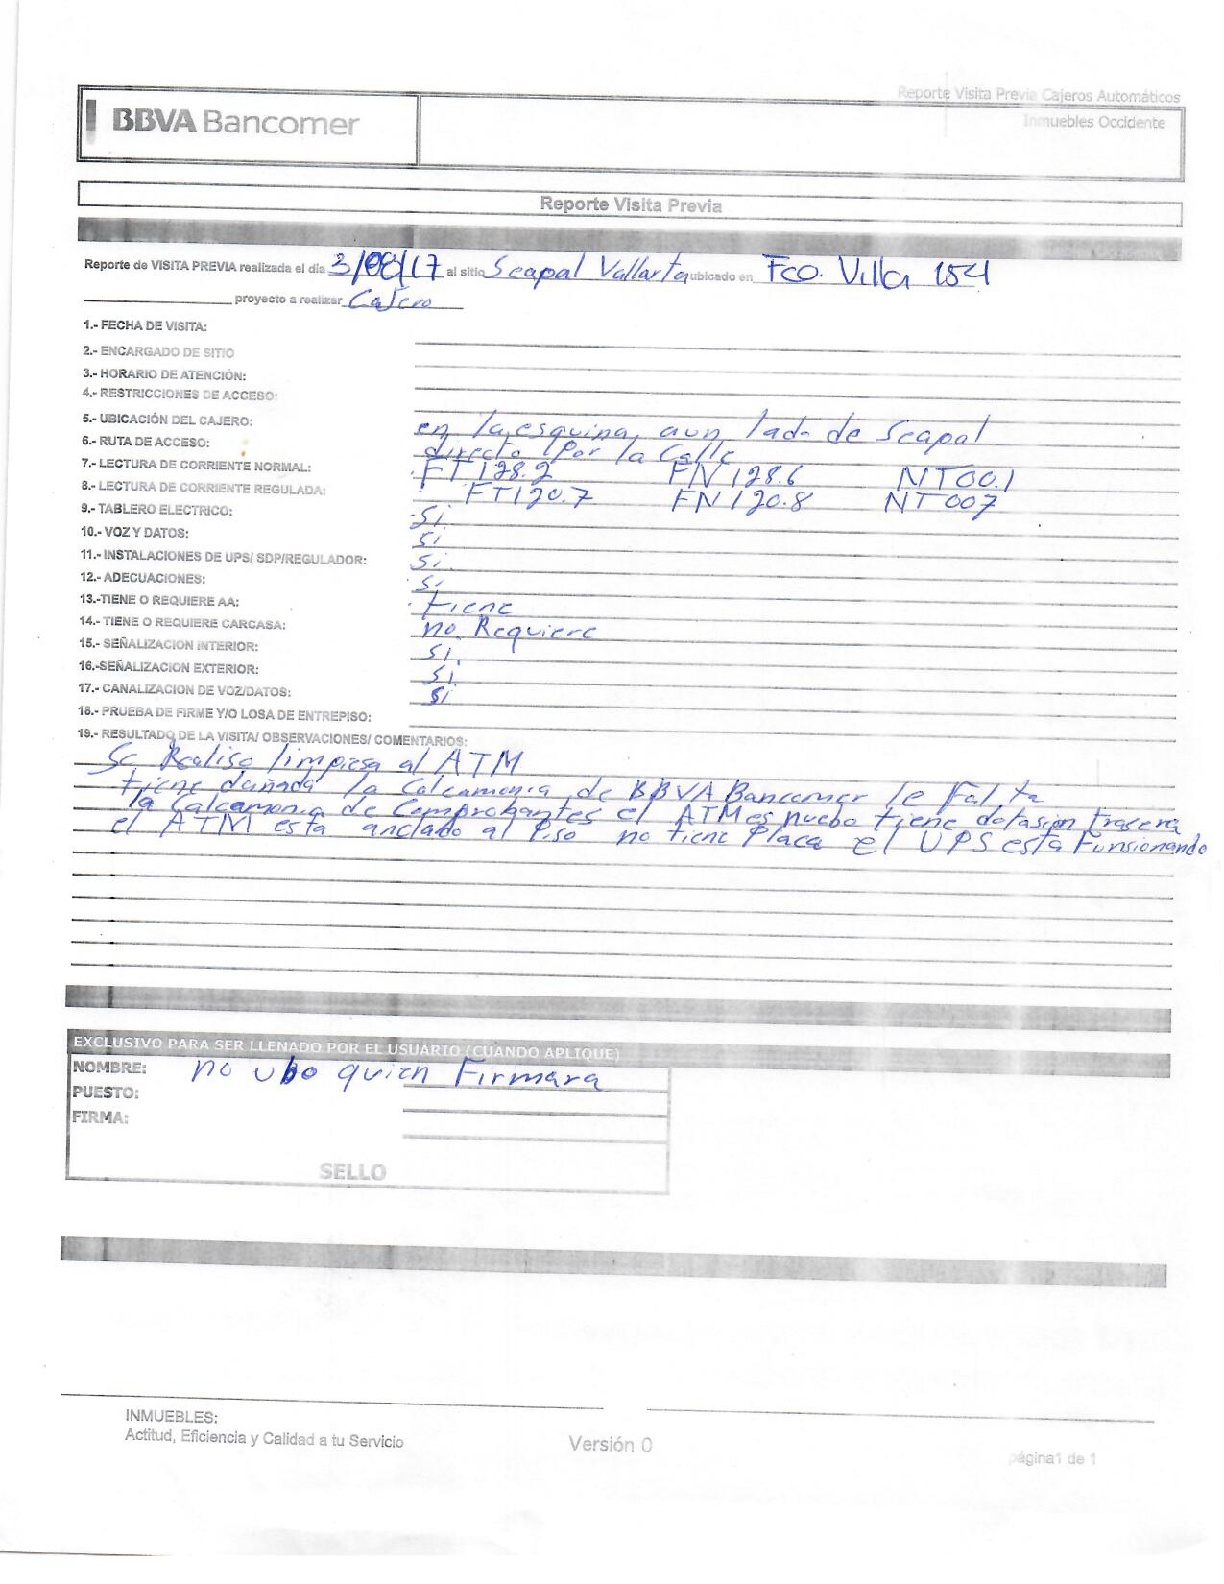 Reporte Visita Previa Cajeros Automáticos
BBVA Bancomer
Inmuebles Occidente
Reporte Visita Previa
Reporte de VISITA PREVIA realizada el día 3/08/17 al sitio Seapal Vallarta ubicado en Fco. Villa 1541
proyecto a realizar Cajero
1.- FECHA DE VISITA:
2.- ENCARGADO DE SITIO
3.- HORARIO DE ATENCIÓN:
4.- RESTRICCIONES DE ACCESO:
5.- UBICACIÓN DEL CAJERO: en la esquina, aun lado de Seapal
6.- RUTA DE ACCESO: directo por la Calle
7.- LECTURA DE CORRIENTE NORMAL: FT128.2 FN128.6 NT00.1
8.- LECTURA DE CORRIENTE REGULADA: FT120.7 FN120.8 NT007
9.- TABLERO ELECTRICO: Si
10.- VOZ Y DATOS: Si
11.- INSTALACIONES DE UPS/ SDP/REGULADOR: Si
12.- ADECUACIONES: Si
13.-TIENE O REQUIERE AA: tiene
14.- TIENE O REQUIERE CARCASA: no Requiere
15.- SEÑALIZACION INTERIOR: Si
16.-SEÑALIZACION EXTERIOR: Si
17.- CANALIZACION DE VOZ/DATOS: Si
18.- PRUEBA DE FIRME Y/O LOSA DE ENTREPISO:
19.- RESULTADO DE LA VISITA/ OBSERVACIONES/ COMENTARIOS:
Se Realiso limpiesa al ATM
tiene dañada la Calcamonia de BBVA Bancomer le Falta
la Calcamonia de Comprobantes el ATM es nuebo tiene dotasion trasera
el ATM esta anclado al Piso no tiene Placa el UPS esta Funsionando
EXCLUSIVO PARA SER LLENADO POR EL USUARIO (CUANDO APLIQUE)
NOMBRE: no ubo quien Firmara
PUESTO:
FIRMA:
SELLO
INMUEBLES:
Actitud, Eficiencia y Calidad a tu Servicio
Versión 0
página1 de 1